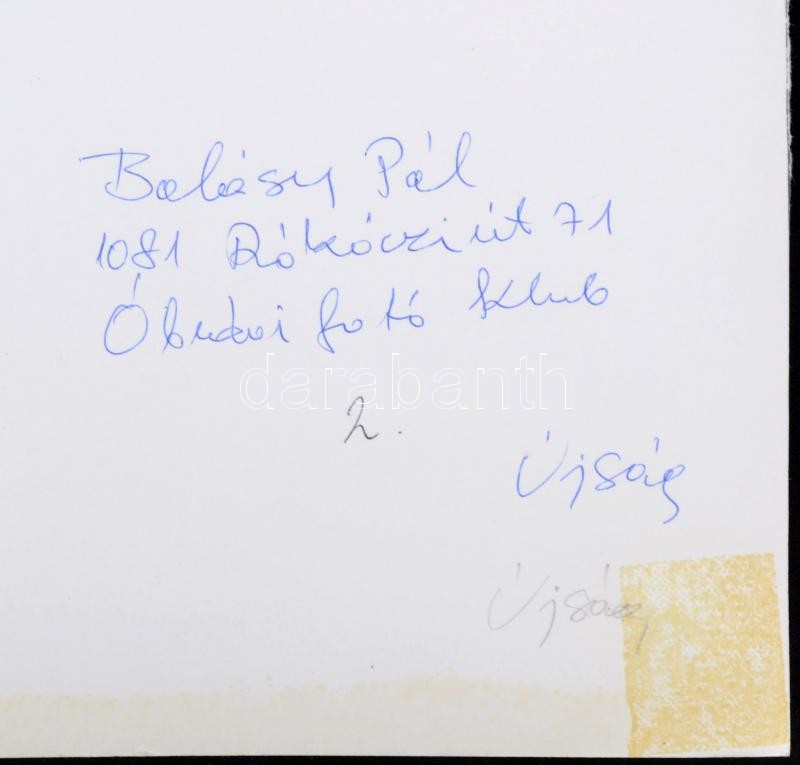 Balásy Pál
1081 Rákóczi út 71
Óbudai fotó klub
darabanth
2.
Újság
Újság